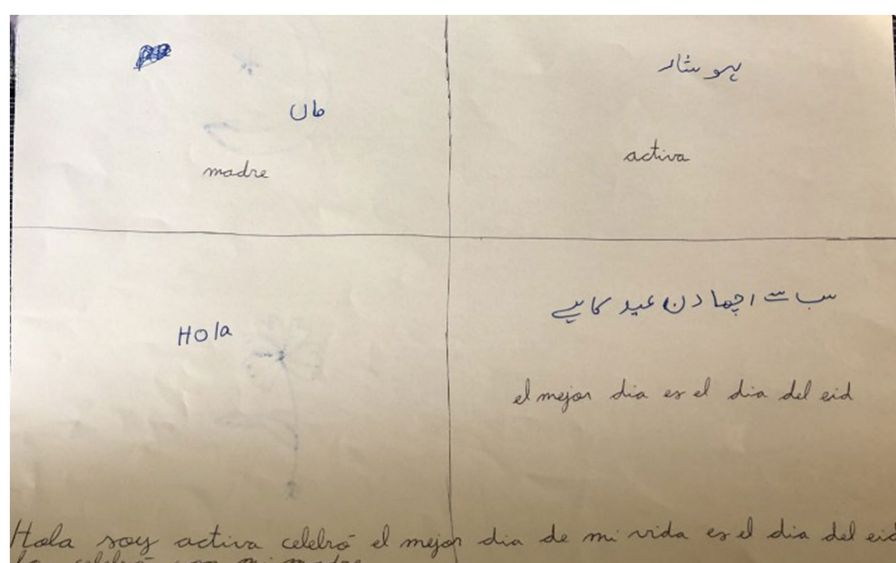 ماں
madre
ہوشار
activa
Hola
سب سے اچھا دن عید کا ہے
el mejor dia es el dia del eid
Hola soy activa celebró el mejor dia de mi vida es el dia del eid
celebró con mi madre